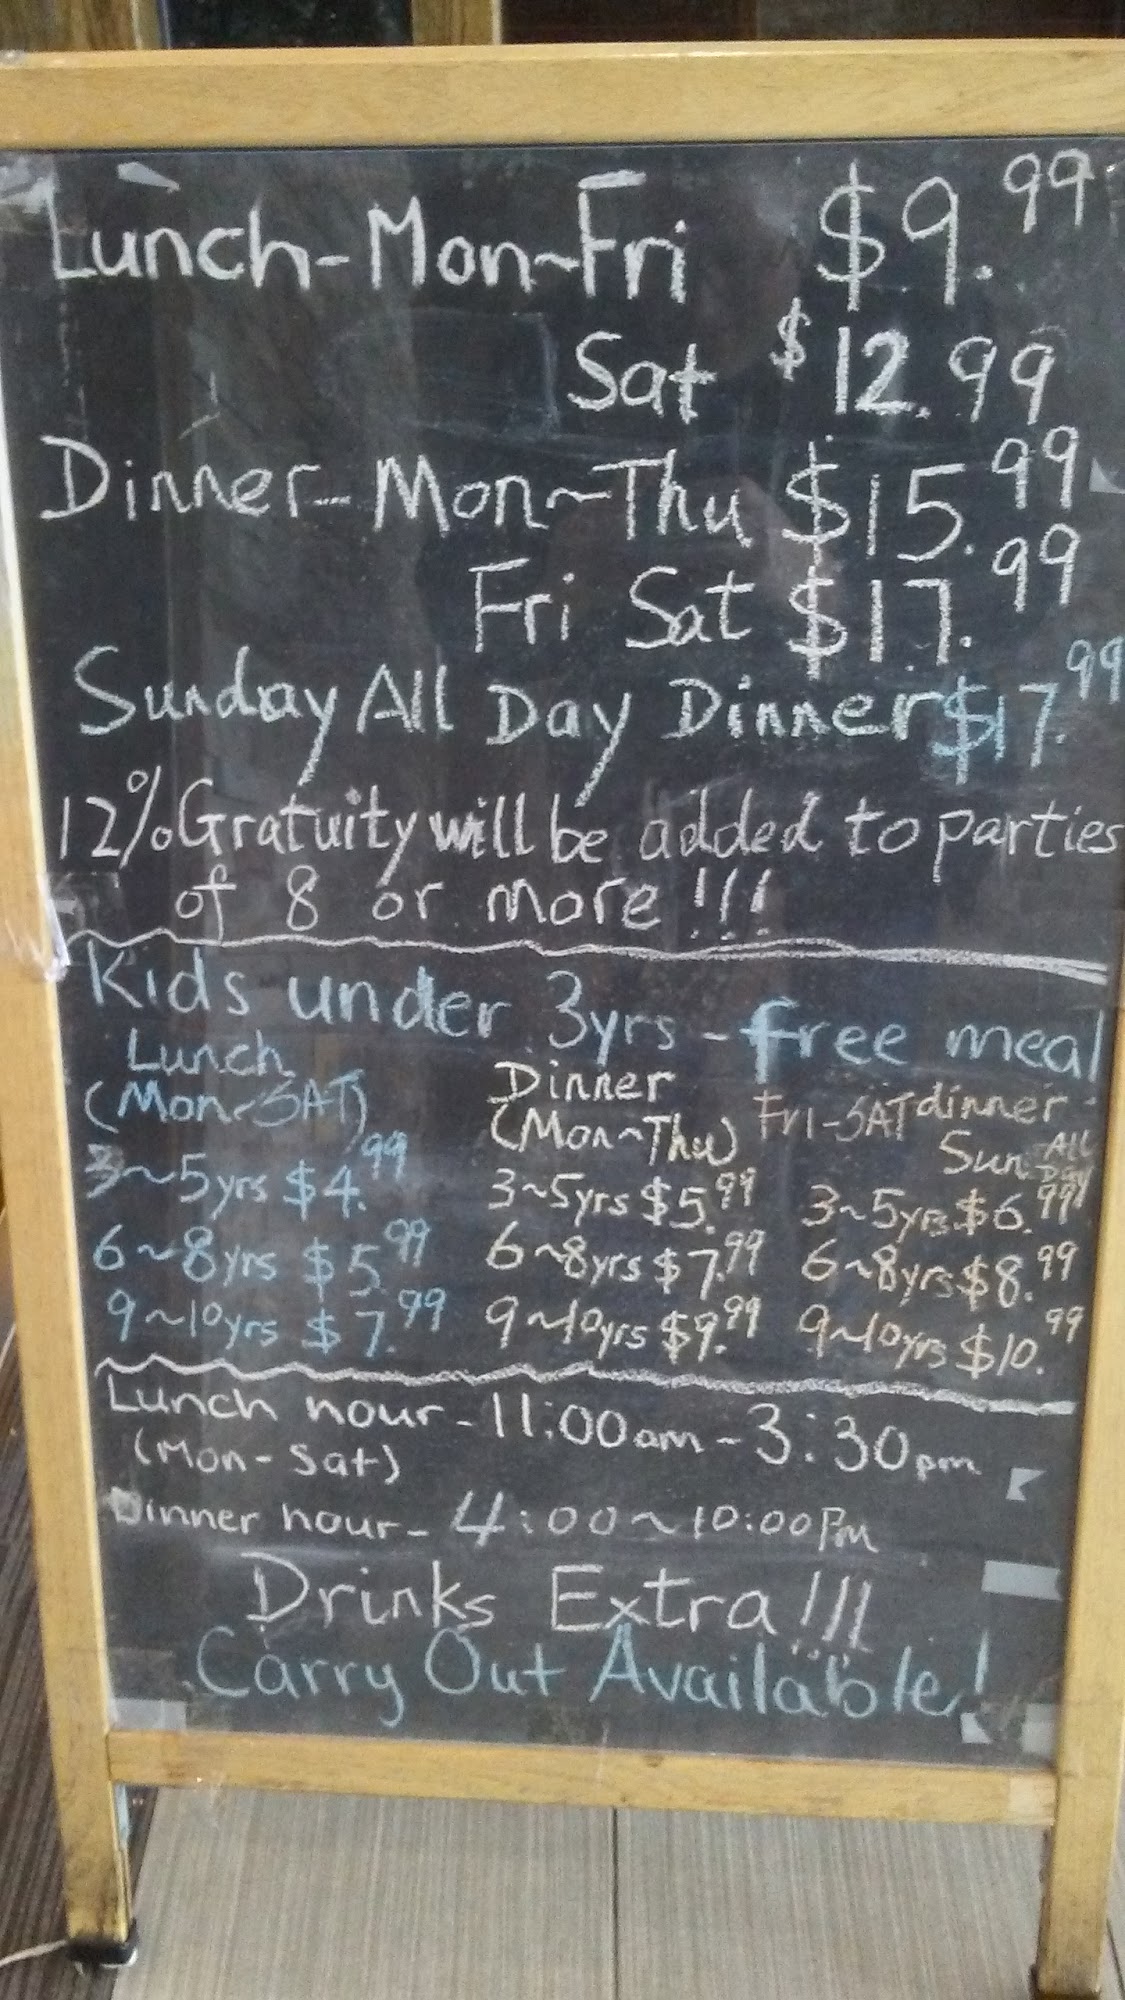 Lunch-Mon~Fri $9.99
Sat $12.99
Dinner-Mon~Thu $15.99
Fri Sat $17.99
Sunday All Day Dinner $17.99
12% Gratuity will be added to parties
of 8 or more!!!
Kids under 3yrs - free meal
Lunch
(Mon~SAT)
3~5yrs $4.99
6~8yrs $5.99
9~10yrs $7.99
Dinner
(Mon~Thu)
3~5yrs $5.99
6~8yrs $7.99
9~10yrs $9.99
Fri-SAT dinner
Sun All Day
3~5yrs $6.99
6~8yrs $8.99
9~10yrs $10.99
Lunch hour - 11:00am - 3:30pm
(Mon-Sat)
Dinner hour - 4:00~10:00Pm
Drinks Extra!!!
Carry Out Available!